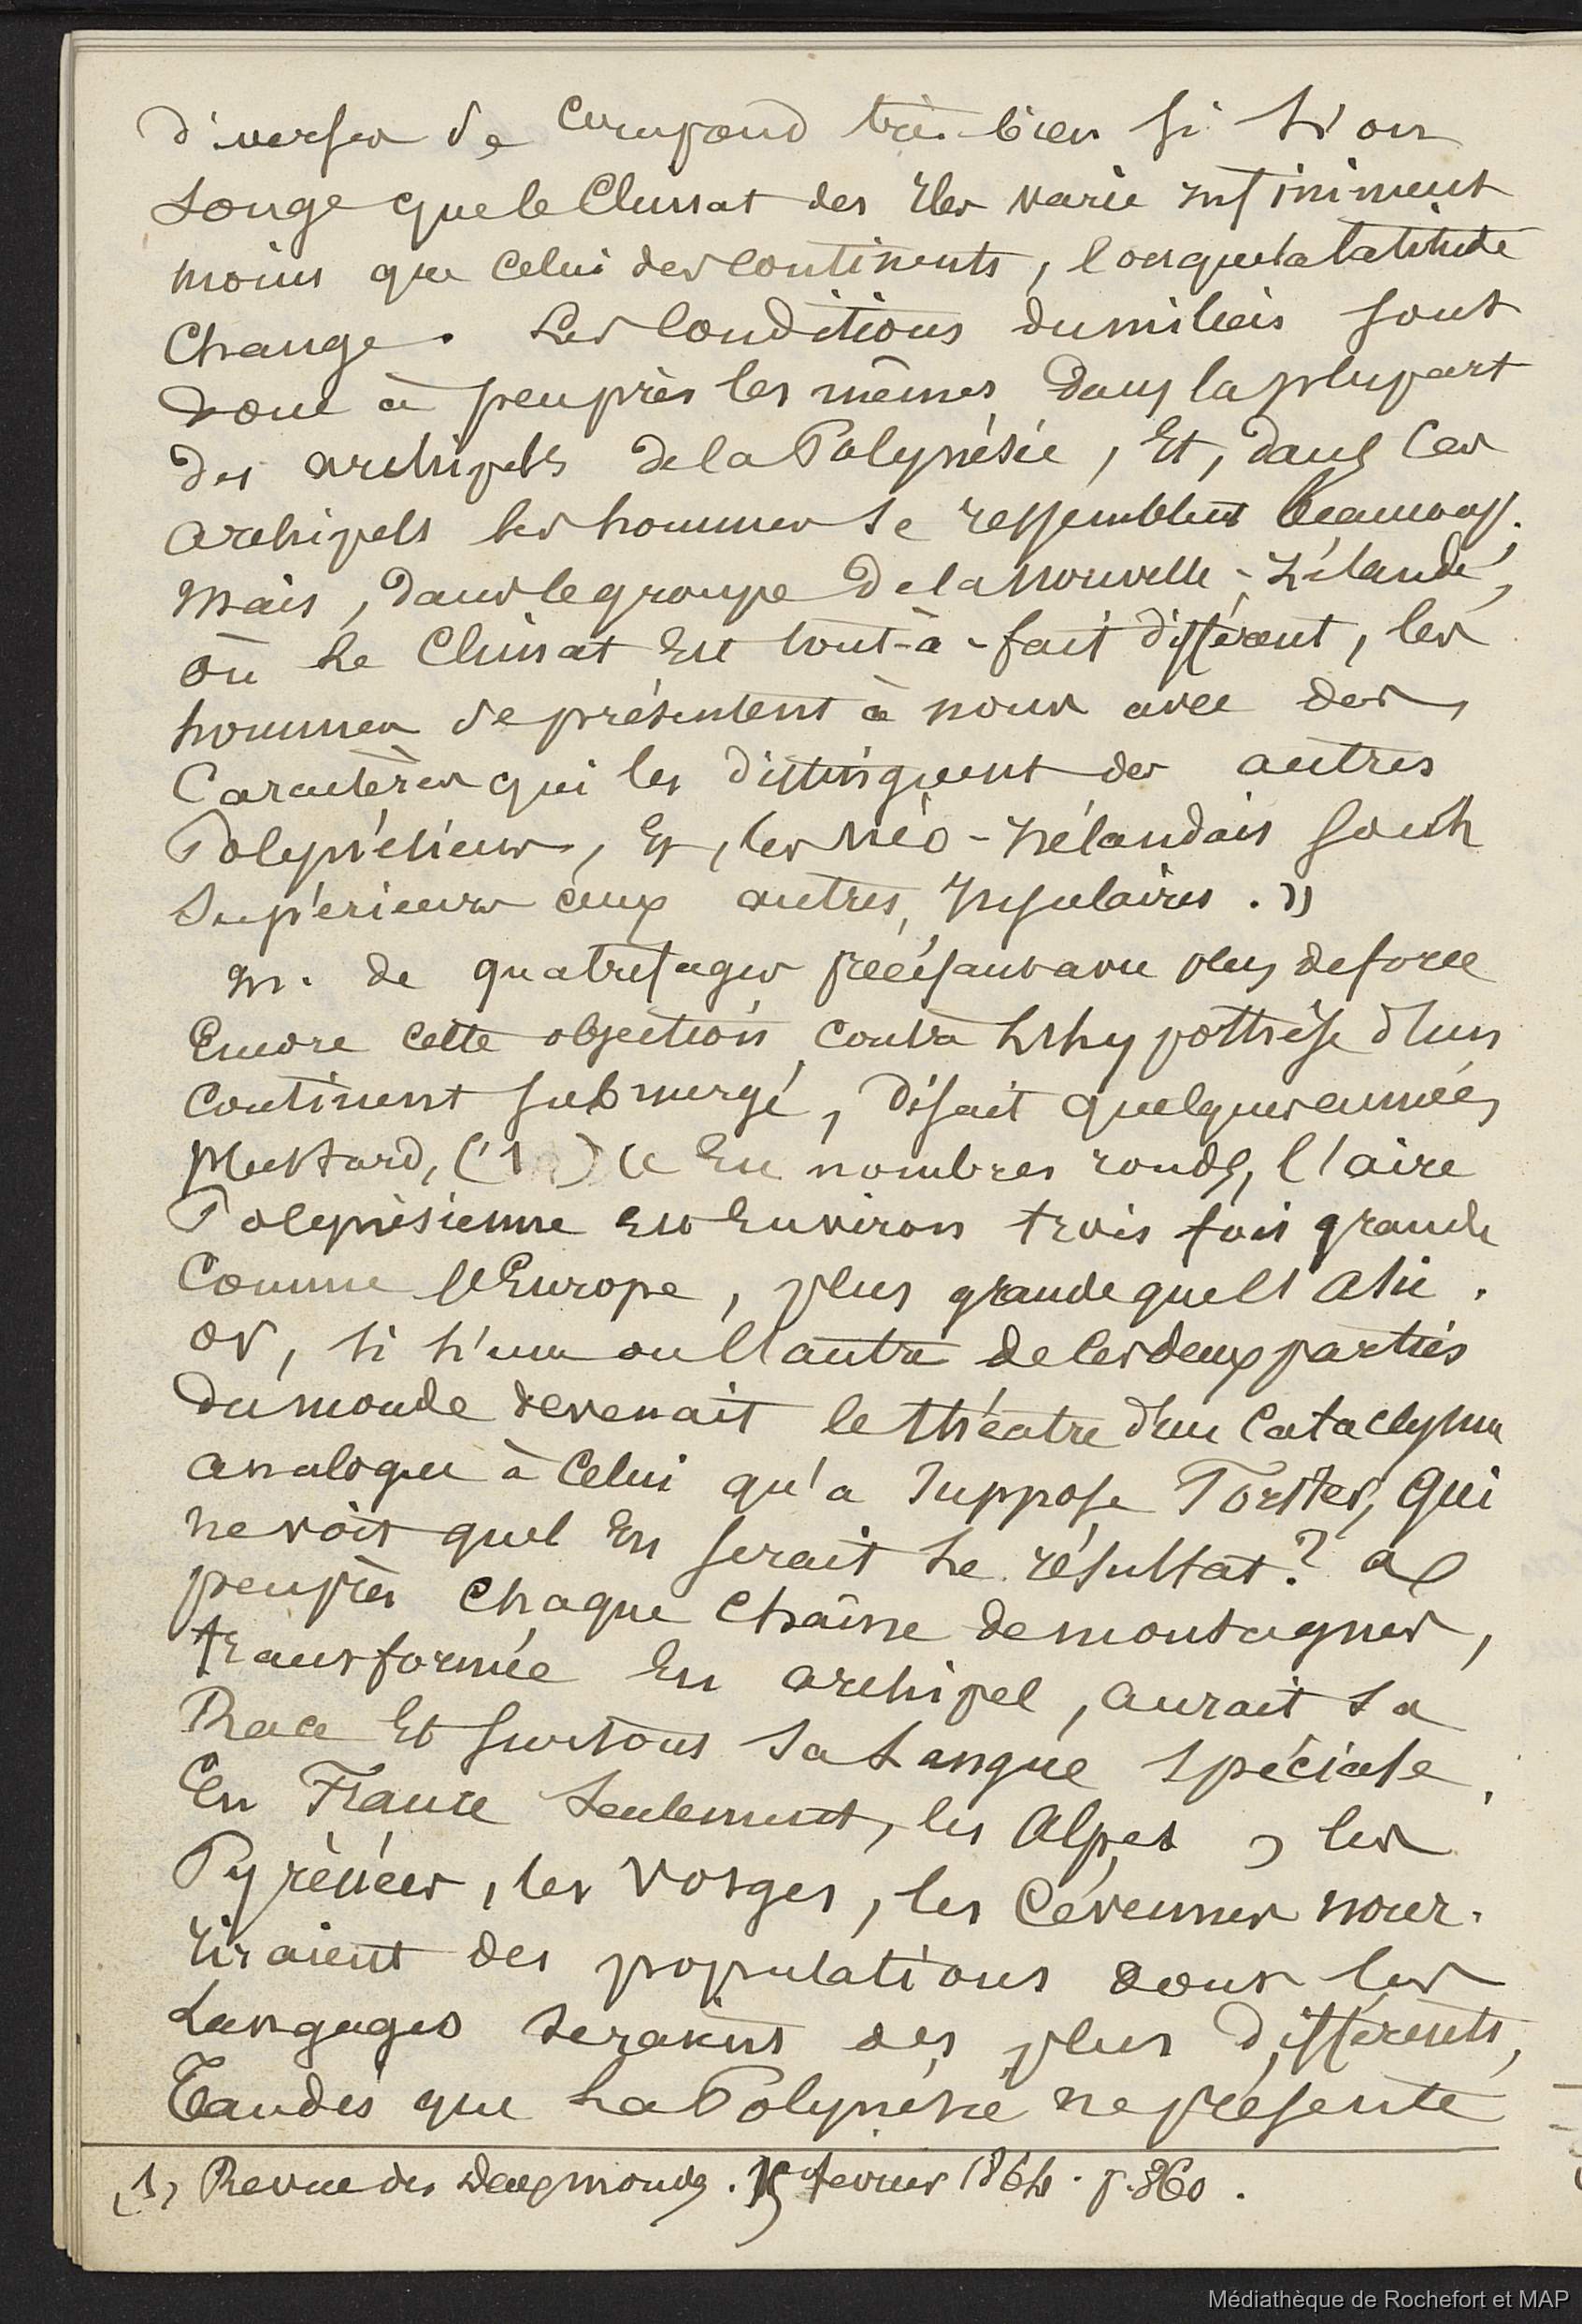 diverses se comprend très-bien si l'on
songe que le Climat des Iles varie infiniment
moins que celui des continents, lorsque la latitude
Change. Les Conditions du milieu sont
donc à peu près les mêmes dans la plupart
des archipels de la Polynésie, Et, dans ces
archipels les hommes se ressemblent beaucoup.
Mais, dans le groupe de la Nouvelle-Zélande,
où le Climat est tout-à-fait différent, les
hommes se présentent à nous avec des
Caractères qui les distinguent des autres
Polynésiens, Et, les Néo-Zélandais sont
Supérieurs aux autres Insulaires. »
M. de quatrefages précisant avec plus de force
Encore cette objection contre l'hypothèse d'un
Continent submergé, disait quelques années
plus tard, (1) « En nombres ronds, l'aire
Polynésienne est Environ trois fois grande
Comme l'Europe, plus grande que l'Asie.
Or, si l'une ou l'autre de ces deux parties
du monde devenait le théâtre d'un Cataclysme
analogue à celui qu'a supposé Forster, qui
ne voit quel En serait le résultat? à
peu près chaque chaîne de montagnes,
transformée En archipel, aurait sa
Race Et surtout sa Langue spéciale.
En France seulement, les Alpes, les
Pyrénées, les Vosges, les Cévennes nour-
riraient des populations dont les
Langages seraient des plus différents,
Tandis que la Polynésie ne présente
(1) Revue des deux mondes. 15 février 1864. p. 860.
Médiathèque de Rochefort et MAP